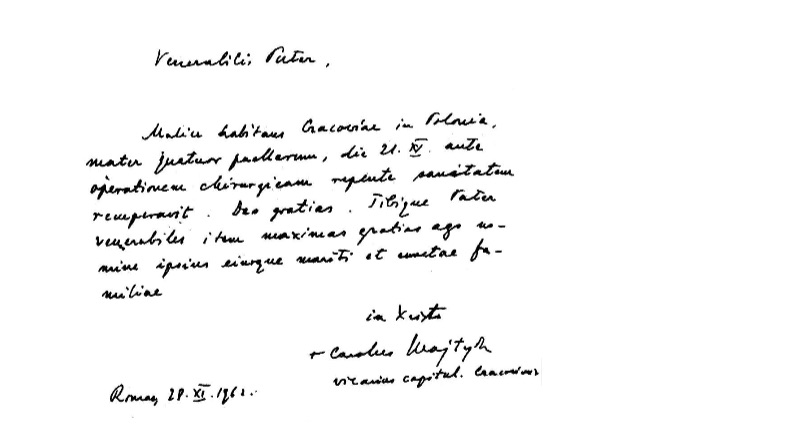 Venerabilis Pater,
Mulier habitans Cracoviae in Polonia,
mater quatuor puellarum, die 21. XI. ante
operationem chirurgicam repente sanitatem
recuperavit. Deo gratias. Tibique Pater
venerabiles item maximas gratias ago no-
mine ipsius eiusque mariti et cunctae fa-
miliae
in Xristo
+ Carolus Wojtyła
vicarius capitul. Cracoviae
Romae, 28. XI. 1962.